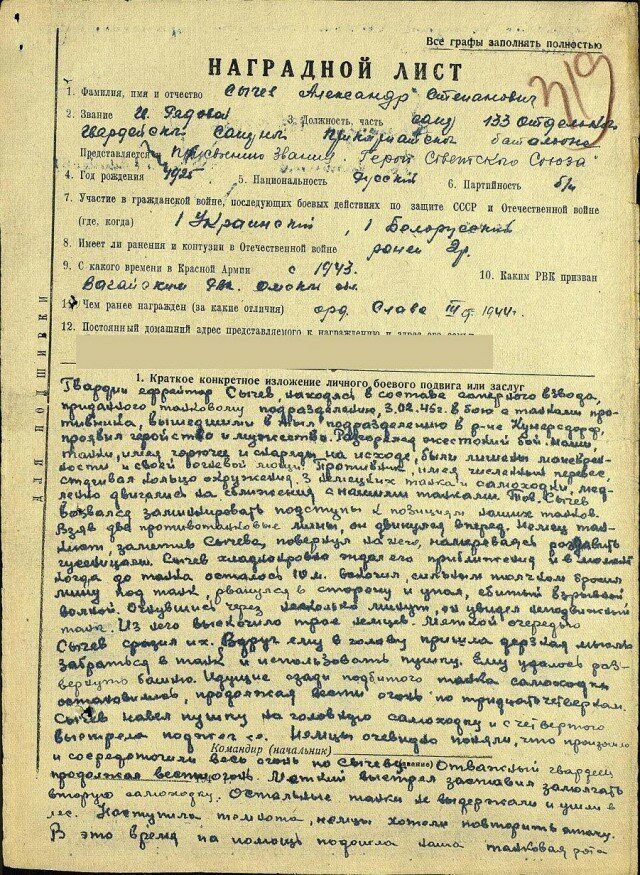 Все графы заполнять полностью
НАГРАДНОЙ ЛИСТ
319
1. Фамилия, имя и отчество Сычев Александр Степанович
2. Звание Гв. Рядовой 3. Должность, часть сапер 133 Отдельного
Гвардейского Сапёрн Прикарпатского батальона
Представляется к присвоению звания „Герой Советского Союза"
4. Год рождения 1925 5. Национальность Русский 6. Партийность б/п
7. Участие в гражданской войне, последующих боевых действиях по защите СССР и Отечественной войне
(где, когда) 1 Украинский, 1 Белорусский
8. Имеет ли ранения и контузии в Отечественной войне ранен 2р.
9. С какого времени в Красной Армии с 1943. 10. Каким РВК призван
Вагайским Рвк. Омской обл.
11. Чем ранее награжден (за какие отличия) орд. Слава III ст. 1944 г.
12. Постоянный домашний адрес представляемого к награждению и адрес его семьи
ДЛЯ ПОДШИВКИ
1. Краткое конкретное изложение личного боевого подвига или заслуг
Гвардии ефрейтор Сычев, находясь в составе саперного взвода,
приданного танковому подразделению, 3.02.45г. в бою с танками про-
тивника, вышедшими в тыл подразделению в р-не Кунерсдорф,
проявил геройство и мужество. Разгорелся жестокий бой. Наши
танки, имея горючее и снаряды на исходе, были лишены маневрен-
ности и своей огневой мощи. Противник, имея численный перевес,
сжимал кольцо окружения. 3 немецких танка и самоходки, мед-
ленно двигались на сближение с нашими танками. Тов. Сычев
вызвался заминировать подступы к позициям наших танков.
Взяв два противотанковые мины, он двинулся вперед. Немец тан-
кист, заметив Сычева, повернул на него, намереваясь раздавить
гусеницами. Сычев хладнокровно ждал его приближения и в момент
когда до танка осталось 10 м. вскочил, сильным толчком бросил
мину под танк, рванулся в сторону и упал, сбитый взрывной
волной. Очнувшись через несколько минут, он увидел неподвижный
танк. Из него выскочило трое немцев. Меткой очередью
Сычев сразил их. Вдруг ему в голову пришла дерзкая мысль
забраться в танк и использовать пушку. Ему удалось раз-
вернуть башню. Идущие сзади подбитого танка самоходки
остановились, продолжая вести огонь по тридцатьчетверкам.
Сычев навел пушку на головную самоходку и с четвертого
выстрела поджег ее. Немцы очевидно поняли, что произошло
Командир (начальник)
и сосредоточили весь огонь по Сычеву. (звание) Отважный гвардеец
продолжал вести огонь. Меткий выстрел заставил замолчать
вторую самоходку. Остальные танки не выдержали и ушли в
лес. Наступила темнота, немцы хотели повторить атаку.
В это время на помощь подошла наша танковая рота